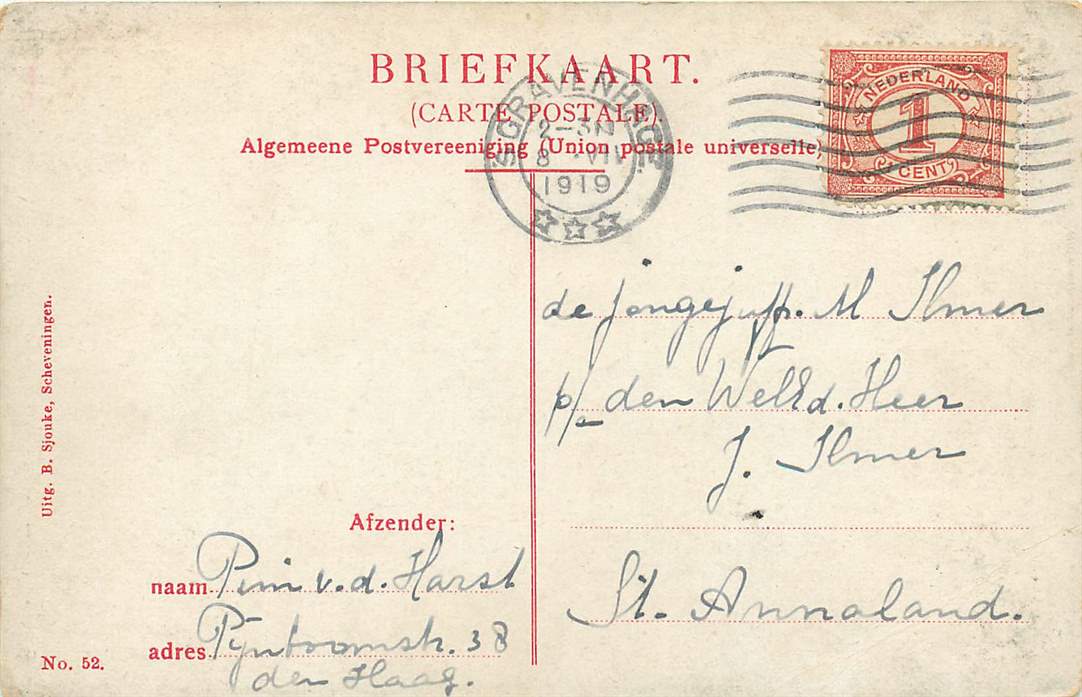 BRIEFKAART.
(CARTE POSTALE).
Algemeene Postvereeniging (Union postale universelle)
'SGRAVENHAGE
2-3N
8 VII
1919
NEDERLAND
1
CENT
de jongejuffr. M Ilmer
p/a den WelEd. Heer
J. Ilmer
St. Annaland.
Uitg. B. Sjouke, Scheveningen.
Afzender:
naam Pim v.d. Harst
adres Pijnboomstr. 38
den Haag.
No. 52.